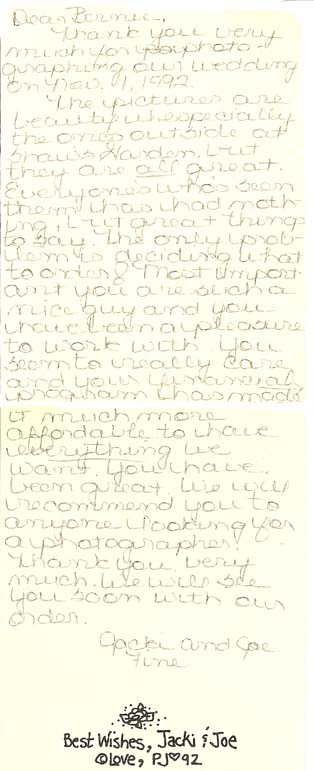 Dear Bernie,
Thank you very
much for photo-
graphing our wedding
on Nov. 1, 1992.
The pictures are
beauty especially
the ones outside at
Shaw's Garden, but
they are all great.
Everyone who's seen
them has had noth-
ing, but great things
to say. The only prob-
lem is deciding what
to order! Most import-
ant you are such a
nice guy and you
have been a pleasure
to work with. You
seem to really care
and your financial
program has made
it much more
affordable to have
everything we
want. You have
been great. We will
recommend you to
anyone looking for
a photographer!
Thank you very
much. We will see
you soon with our
order.
Jacki and Joe
Fine
Best Wishes, Jacki & Joe
©Love, PJ♡92